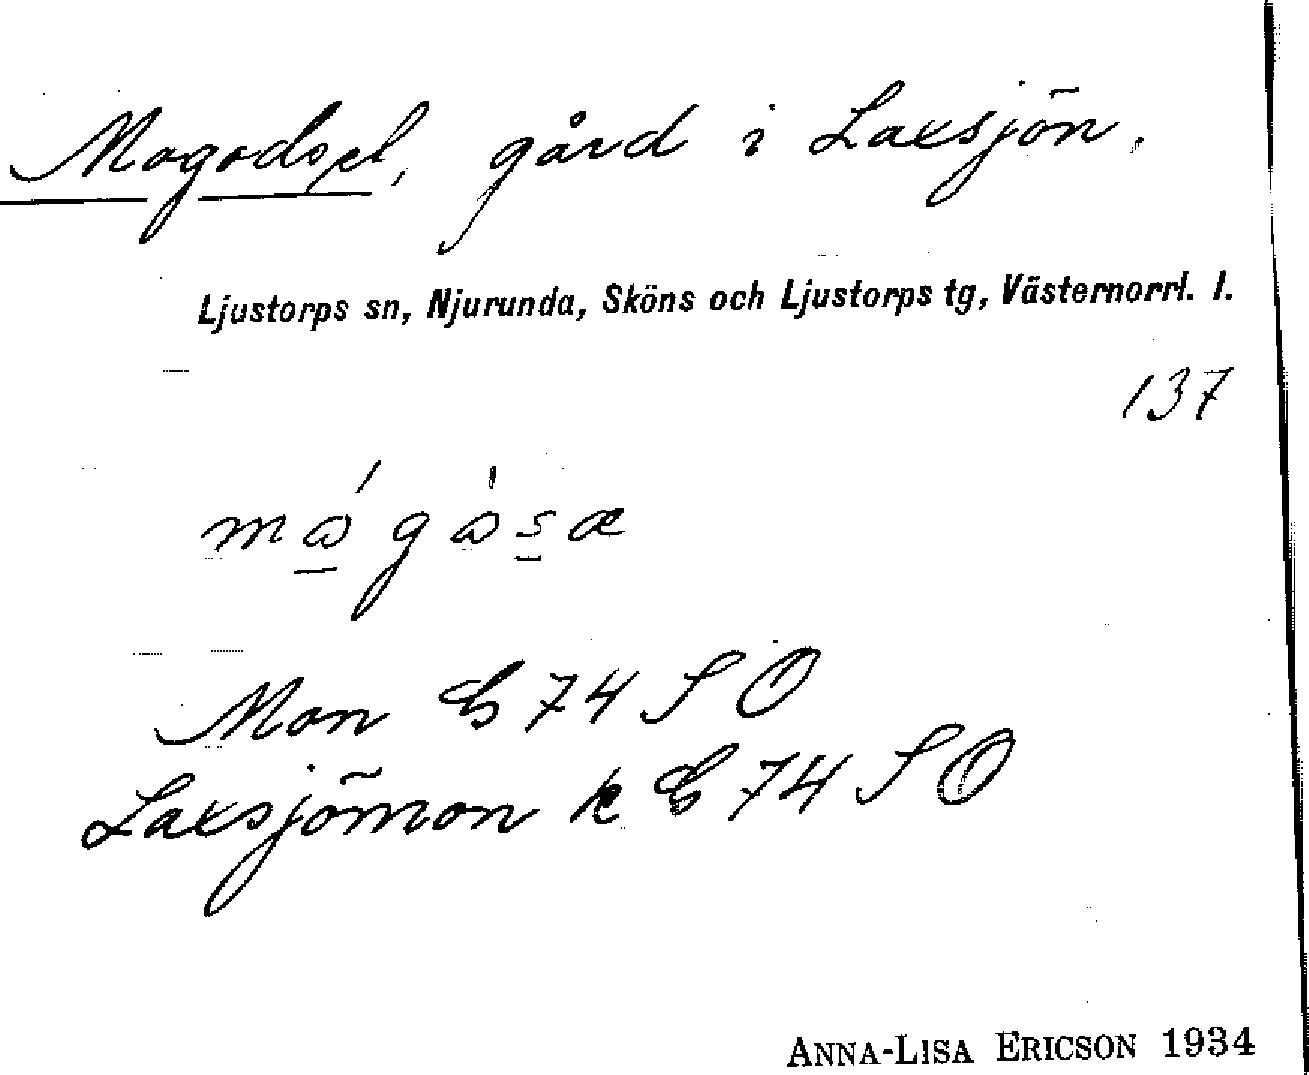 Mogodset, gård i Laxsjön.
Ljustorps sn, Njurunda, Sköns och Ljustorps tg, Västernorrl. l.
137
Mon G 74 S O
Laxsjömon k G 74 S O
ANNA-LISA ERICSON 1934